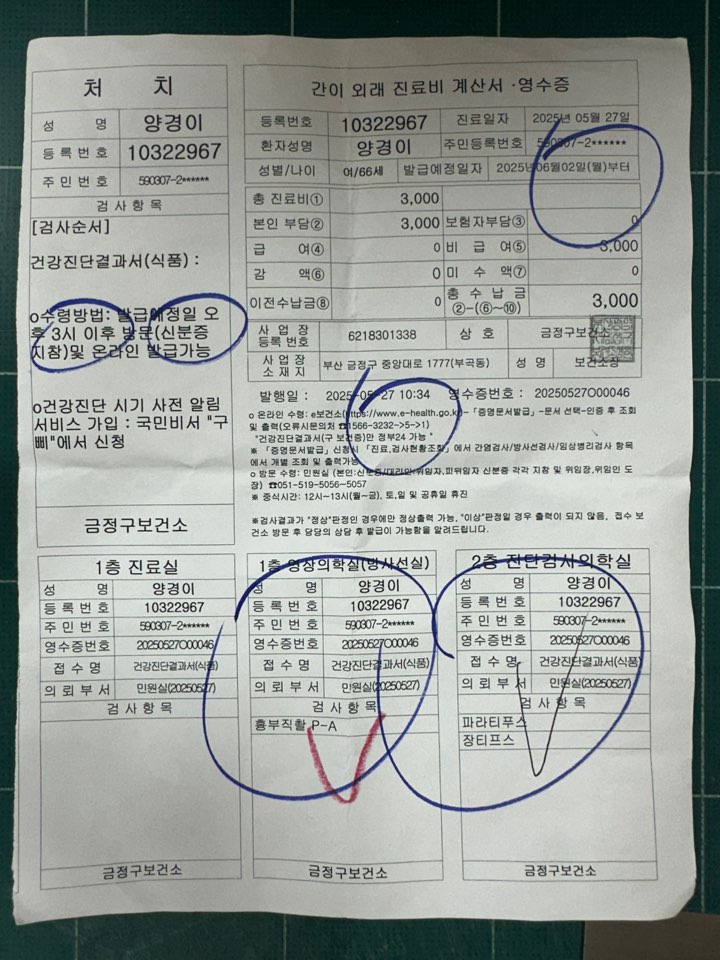 처 치
성 명 양경이
등록번호 10322967
주민번호 590307-2******
검사항목
[검사순서]
건강진단결과서(식품) :
o수령방법: 발급예정일 오
후 3시 이후 방문(신분증
지참)및 온라인 발급가능
o건강진단 시기 사전 알림
서비스 가입 : 국민비서 "구
삐"에서 신청
금정구보건소
간이 외래 진료비 계산서 ·영수증
등록번호 10322967 진료일자 2025년 05월 27일
환자성명 양경이 주민등록번호 590307-2******
성별/나이 여/66세 발급예정일자 2025년06월02일(월)부터
총 진료비① 3,000
본인 부담② 3,000 보험자부담③ 0
급 여④ 0 비 급 여⑤ 3,000
감 액⑥ 0 미 수 액⑦ 0
이전수납금⑧ 0 총 수 납 금 ②-(⑥~⑩) 3,000
사 업 장 등록번호 6218301338 상 호 금정구보건소
사 업 장 소 재 지 부산 금정구 중앙대로 1777(부곡동) 성 명 보건소장
발행일 : 2025-05-27 10:34 영수증번호 : 20250527O00046
o 온라인 수령: e보건소(https://www.e-health.go.kr)-「증명문서발급」-문서 선택-인증 후 조회
및 출력(오류시문의처 ☎1566-3232->5->1)
"건강진단결과서(구 보건증)만 정부24 가능"
※ 「증명문서발급」신청시 「진료,검사현황조회」에서 간염검사/방사선검사/임상병리검사 항목
에서 개별 조회 및 출력가능
o 방문 수령: 민원실 (본인:신분증/대리인:위임자,피위임자 신분증 각각 지참 및 위임장,위임인 도
장) ☎051-519-5056~5057
※ 중식시간: 12시~13시(월~금), 토,일 및 공휴일 휴진
※검사결과가 "정상"판정인 경우에만 정상출력 가능, "이상"판정일 경우 출력이 되지 않음, 접수 보
건소 방문 후 담당의 상담 후 발급이 가능함을 알려드립니다.
1층 진료실
성 명 양경이
등록번호 10322967
주민번호 590307-2******
영수증번호 20250527O00046
접 수 명 건강진단결과서(식품)
의뢰부서 민원실(20250527)
검 사 항 목
금정구보건소
1층 영상의학실(방사선실)
성 명 양경이
등록번호 10322967
주민번호 590307-2******
영수증번호 20250527O00046
접 수 명 건강진단결과서(식품)
의뢰부서 민원실(20250527)
검 사 항 목
흉부직촬 P-A
금정구보건소
2층 진단검사의학실
성 명 양경이
등록번호 10322967
주민번호 590307-2******
영수증번호 20250527O00046
접 수 명 건강진단결과서(식품)
의뢰부서 민원실(20250527)
검 사 항 목
파라티푸스
장티프스
금정구보건소